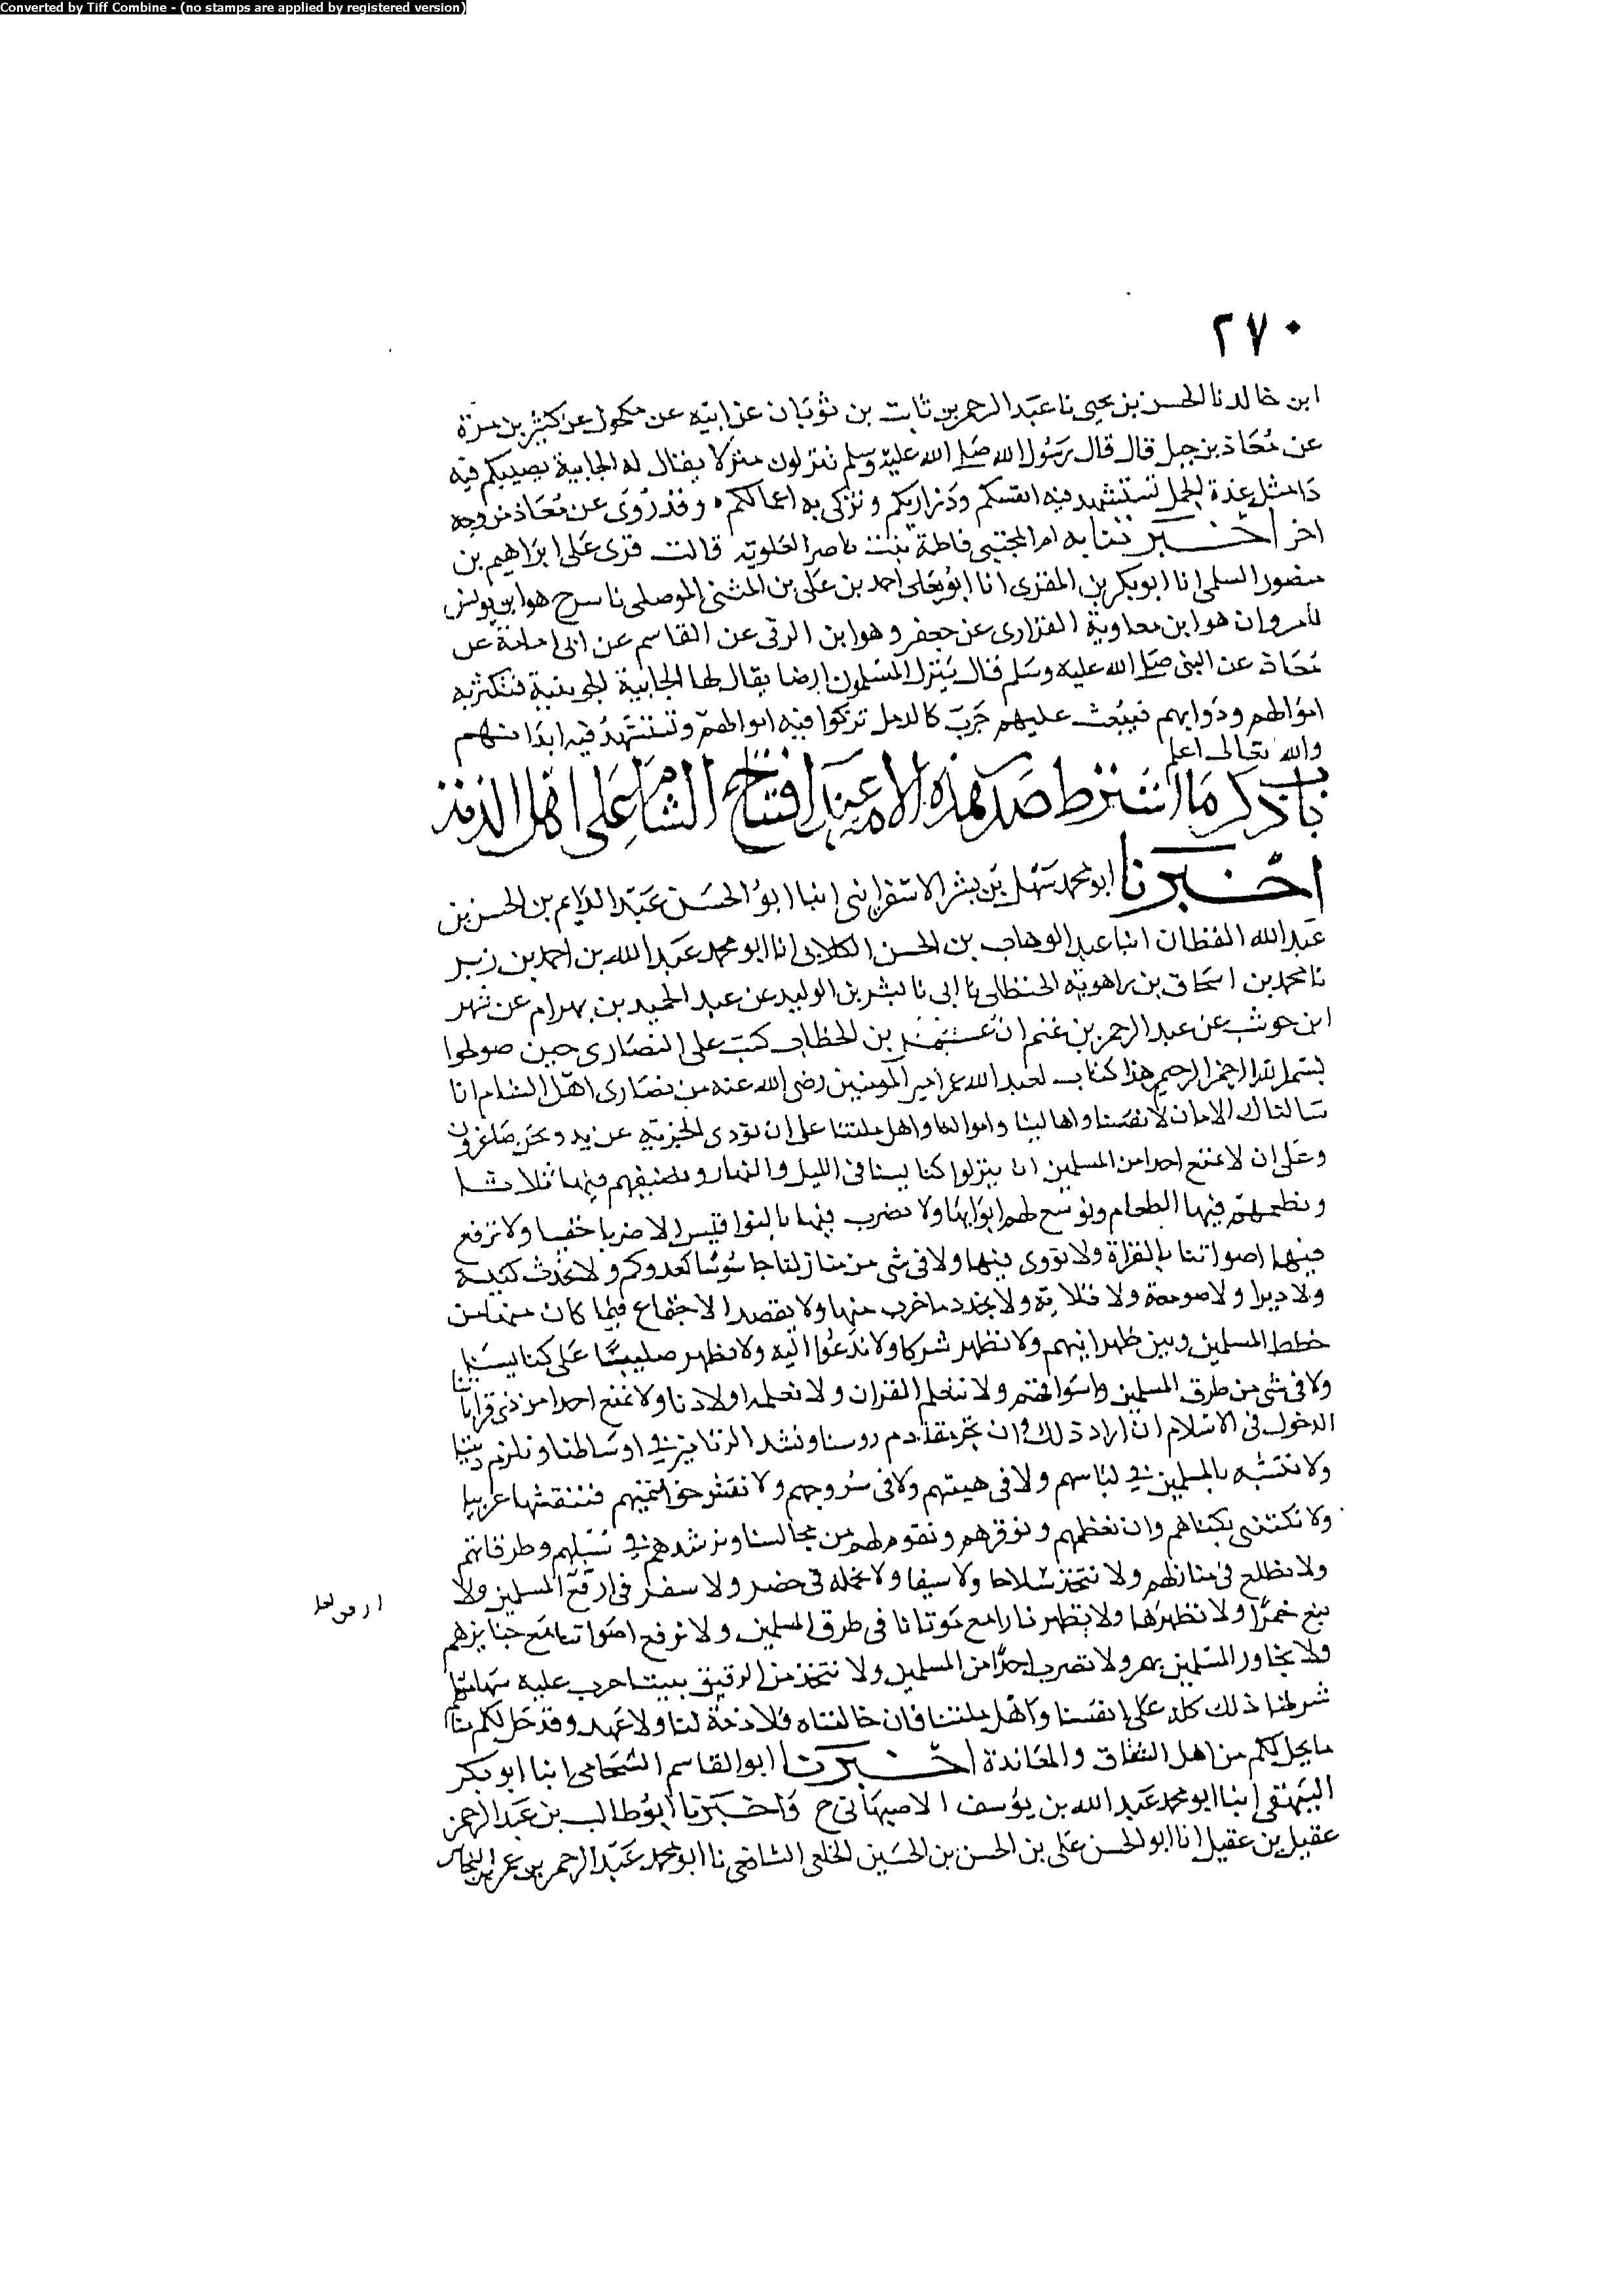 Converted by Tiff Combine - (no stamps are applied by registered version)
٢٧٠
ابن خالد نا الحسن بن يحيى نا عبد الرحمن بن ثابت بن ثوبان عن ابيه عن مكحول عن كثير بن مرة
عن معاذ بن جبل قال قال رسول الله صلى الله عليه وسلم تنزلون منزلا يقال له الجابية يصيبكم فيه
دا مثل غدة الجمل تستشهد فيه انفسكم وذراريكم وتزكى به اعمالكم ٥ وقد روى عن معاذ من وجه
اخر اخبرتنا به ام المجتبى فاطمة بنت ناصر العلوية قالت قرى على ابراهيم بن
منصور السلمى انا ابو بكر بن المقرى انا ابو يعلى احمد بن على بن المثنى الموصلى نا سريج هو ابن يونس
نا مروان هو ابن معاوية الفزارى عن جعفر وهو ابن عن القاسم عن ابى امامة عن
معاذ عن النبى صلى الله عليه وسلم قال ينزل المسلمون ارضا يقال لها الجابية فتكثر به
اموالهم ودوابهم فيبعث عليهم جرب كالدمل تزكوا فيه اموالهم وتستشهد فيه
والله تعالى اعلم
باب ذكر ما اشترط صدر هذه الامة عند افتتاح الشام على اهل الذمة
اخبرنا ابو محمد سهل بن بشر الاسفراينى انبا ابو الحسن عبد الدايم بن الحسن بن
عبد الله القطان انبا عبد الوهاب بن الحسن الكلابى انا ابو محمد عبد الله بن احمد بن زبر
نا محمد بن اسحاق بن راهوية الحنظلى نا ابى نا بشر بن الوليد عن عبد الحميد بن بهرام عن شهر
ابن حوشب عن عبد الرحمن بن غنم ان بن الخطاب كتب على النصارى حين صولحوا
بسم الله الرحمن الرحيم هذا كتاب لعبد الله عمر امير المومنين رضى الله عنه من نصارى اهل الشام انا
سالناك الامان لانفسنا واهالينا واموالنا واهل ملتنا على ان نودى الجزية عن يد ونحن صاغرون
وعلى ان لا نمنع احدا من المسلمين ان ينزلوا كنايسنا فى الليل والنهار ونضيفهم فيها ثلاثا
ونطعمهم فيها الطعام ونوسع لهم ابوابها ولا نضرب فيها بالنواقيس الا ضربا خفيا ولا نرفع
فيها اصواتنا بالقراة ولا نووى فيها ولا فى شى من منازلنا جاسوسا لعدوكم ولا نحدث كنيسة
ولا ديرا ولا صومعة ولا قلاية ولا نجدد ما خرب منها ولا نقصد الاجتماع فيما كان منها من
خطط المسلمين وبين ظهرانيهم ولا نظهر شركا ولا ندعوا اليه ولا نظهر صليبا على كنايسنا
ولا فى شى من طرق المسلمين واسواقهم ولا نتعلم القران ولا نعلمه اولادنا ولا نمنع احدا من ذى قراباتنا
الدخول فى الاسلام ان اراد ذلك وان نجز مقادم روسنا ونشد الزنانير فى اوساطنا ونلزم ديننا
ولا نتشبه بالمسلمين فى لباسهم ولا فى هيبتهم ولا فى سروجهم ولا نقش خواتميهم فننقشها عربيا
ولا نكتنى بكناهم وان نعظمهم ونوقرهم ونقوم لهم من مجالسنا ونرشدهم فى سبلهم وطرقاتهم
ولا نطلع فى منازلهم ولا نتخذ سلاحا ولا سيفا ولا نحمله فى حضر ولا سفر فى ارض المسلمين ولا
نبيع خمرا ولا نظهرها ولا نظهر نارا مع موتانا فى طرق المسلمين ولا نرفع اصواتنا مع جنايزهم
ولا نجاور المسلمين بهم ولا نضرب احدا من المسلمين ولا نتخذ من الرقيق جرت عليه سهامهم
شرطنا ذلك كله على انفسنا واهل ملتنا فان خالفناه فلا ذمة لنا ولا عهد وقد حل لكم منا
ما يحل لكم من اهل الشقاق والمعاندة اخبرنا ابو القاسم الشحامى انبا ابو بكر
البيهقى انبا ابو محمد عبد الله بن يوسف الاصبهانى ح واخبرنا ابو طالب بن عبد الرحمن
عقيل بن عقيل انا ابو الحسن على بن الحسن بن الحسين الخلعى الشافعى نا ابو محمد عبد الرحمن بن عمر بن النحاس